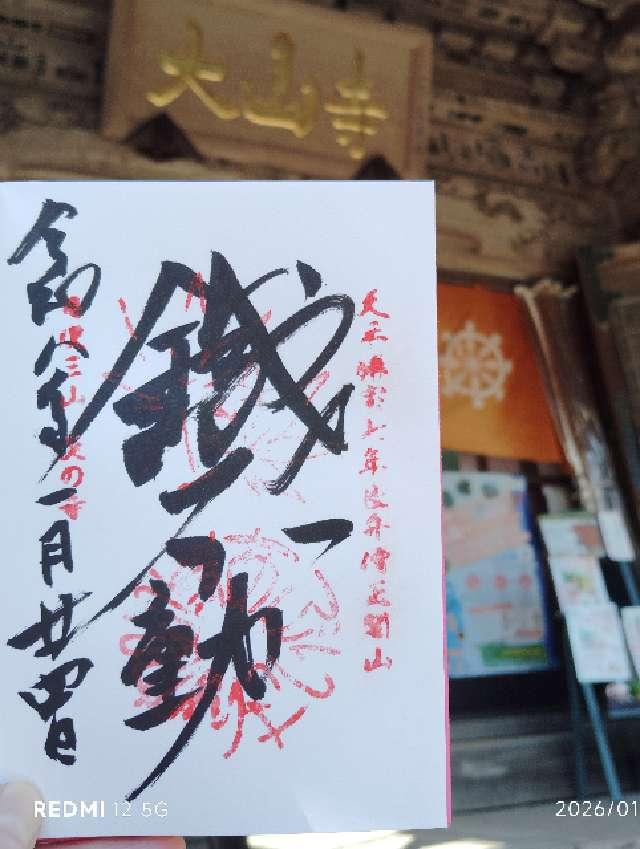 大山寺
天平勝宝七年良弁僧正開山
鐵不動
令和八年一月廿四日
REDMI 12 5G
2026/01